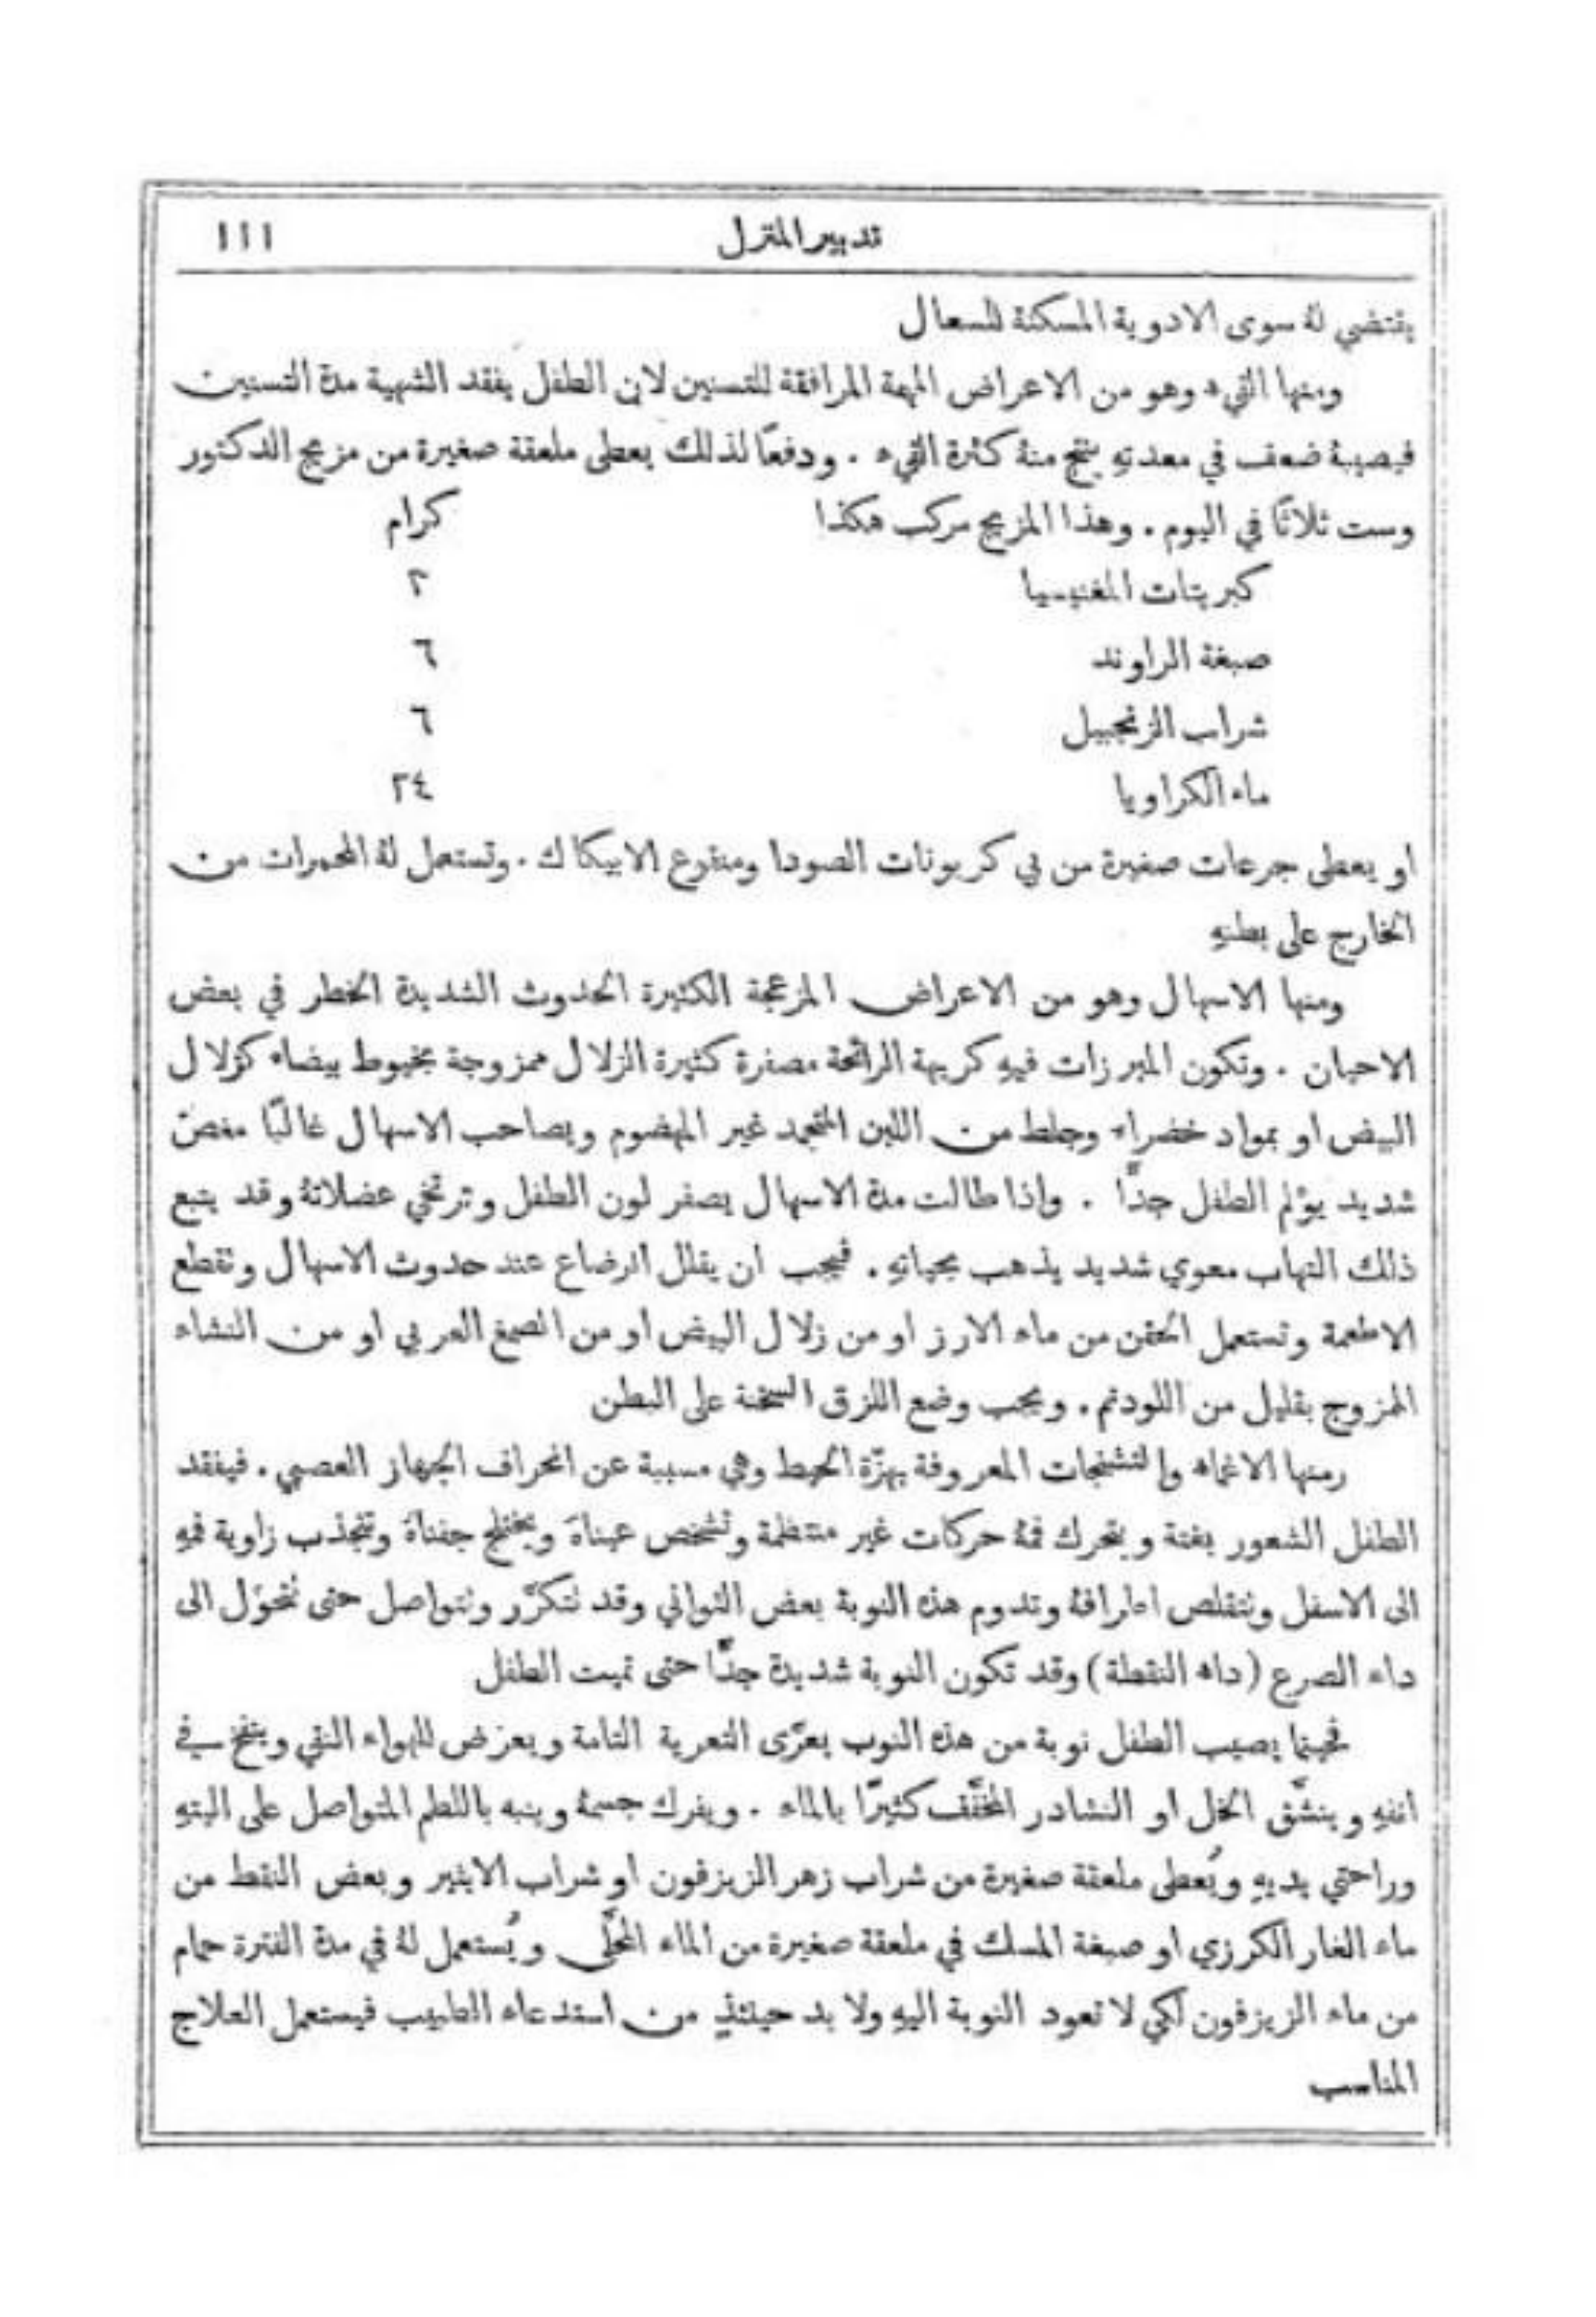 تدبير المنزل ١١١
يقتضي لهُ سوى الادوية المسكنة للسعال
ومنها القيء وهو من الاعراض المهمة المرافقة للتسنين لان الطفل يفقد الشهية مدة التسنين
فيصيبهُ ضعف في معدتهِ ينتج منهُ كثرة القيء . ودفعًا لذلك يعطى ملعقة صغيرة من مزيج الدكتور
وست ثلاثًا في اليوم . وهذا المزيج مركب هكذا كرام
كبريتات المغنيسيا ٢
صبغة الراوند ٦
شراب الزنجبيل ٦
ماء الكراويا ٢٤
او يعطى جرعات صغيرة من بي كربونات الصودا ومنقوع الابيكاك . وتستعمل لهُ المحمرات من
الخارج على بطنهِ
ومنها الاسهال وهو من الاعراض المزعجة الكثيرة الحدوث الشديدة الخطر في بعض
الاحيان . وتكون المبرزات فيهِ كريهة الرائحة مصفرة كثيرة الزلال ممزوجة بخيوط بيضاء كزلال
البيض او بمواد خضراء وجلط من اللبن المتجمد غير المهضوم ويصاحب الاسهال غالبًا مغصٌ
شديد يؤلم الطفل جدًّا . واذا طالت مدة الاسهال يصفر لون الطفل وترتخي عضلاتهُ وقد يتبع
ذلك التهاب معوي شديد يذهب بحياتهِ . فيجب ان يقلل الرضاع عند حدوث الاسهال وتقطع
الاطعمة وتستعمل الحقن من ماء الارز او من زلال البيض او من الصمغ العربي او من النشاء
المزوج بقليل من اللودنم . ويجب وضع اللزق السخنة على البطن
ومنها الاغماء والتشنجات المعروفة بهزّة الحيط وهي مسببة عن انحراف الجهاز العصبي . فيفقد
الطفل الشعور بغتة ويتحرك فمهُ حركات غير منتظمة وتشخص عيناهُ ويختلج جفناهُ وتنجذب زاوية فمهِ
الى الاسفل وتتقلص اطرافهُ وتدوم هذه النوبة بعض الثواني وقد تتكرّر وتتواصل حتى تتحوّل الى
داء الصرع (داء النقطة) وقد تكون النوبة شديدة جدًّا حتى تميت الطفل
فحينما يصيب الطفل نوبة من هذه النوب يعرّى التعرية التامة ويعرّض للهواء النقي وينفخ في
انفهِ وينشَّق الخل او النشادر المخفَّف كثيرًا بالماء . ويفرك جسمهُ وينبه باللطم المتواصل على اليتهِ
وراحتي يديهِ ويُعطى ملعقة صغيرة من شراب زهر الزيزفون او شراب الايثير وبعض النقط من
ماء الغار الكرزي او صبغة المسك في ملعقة صغيرة من الماء المحلَّى ويُستعمل لهُ في مدة الفترة حمام
من ماء الزيزفون لكي لا تعود النوبة اليهِ ولا بد حينئذٍ من استدعاء الطبيب فيستعمل العلاج
المناسب